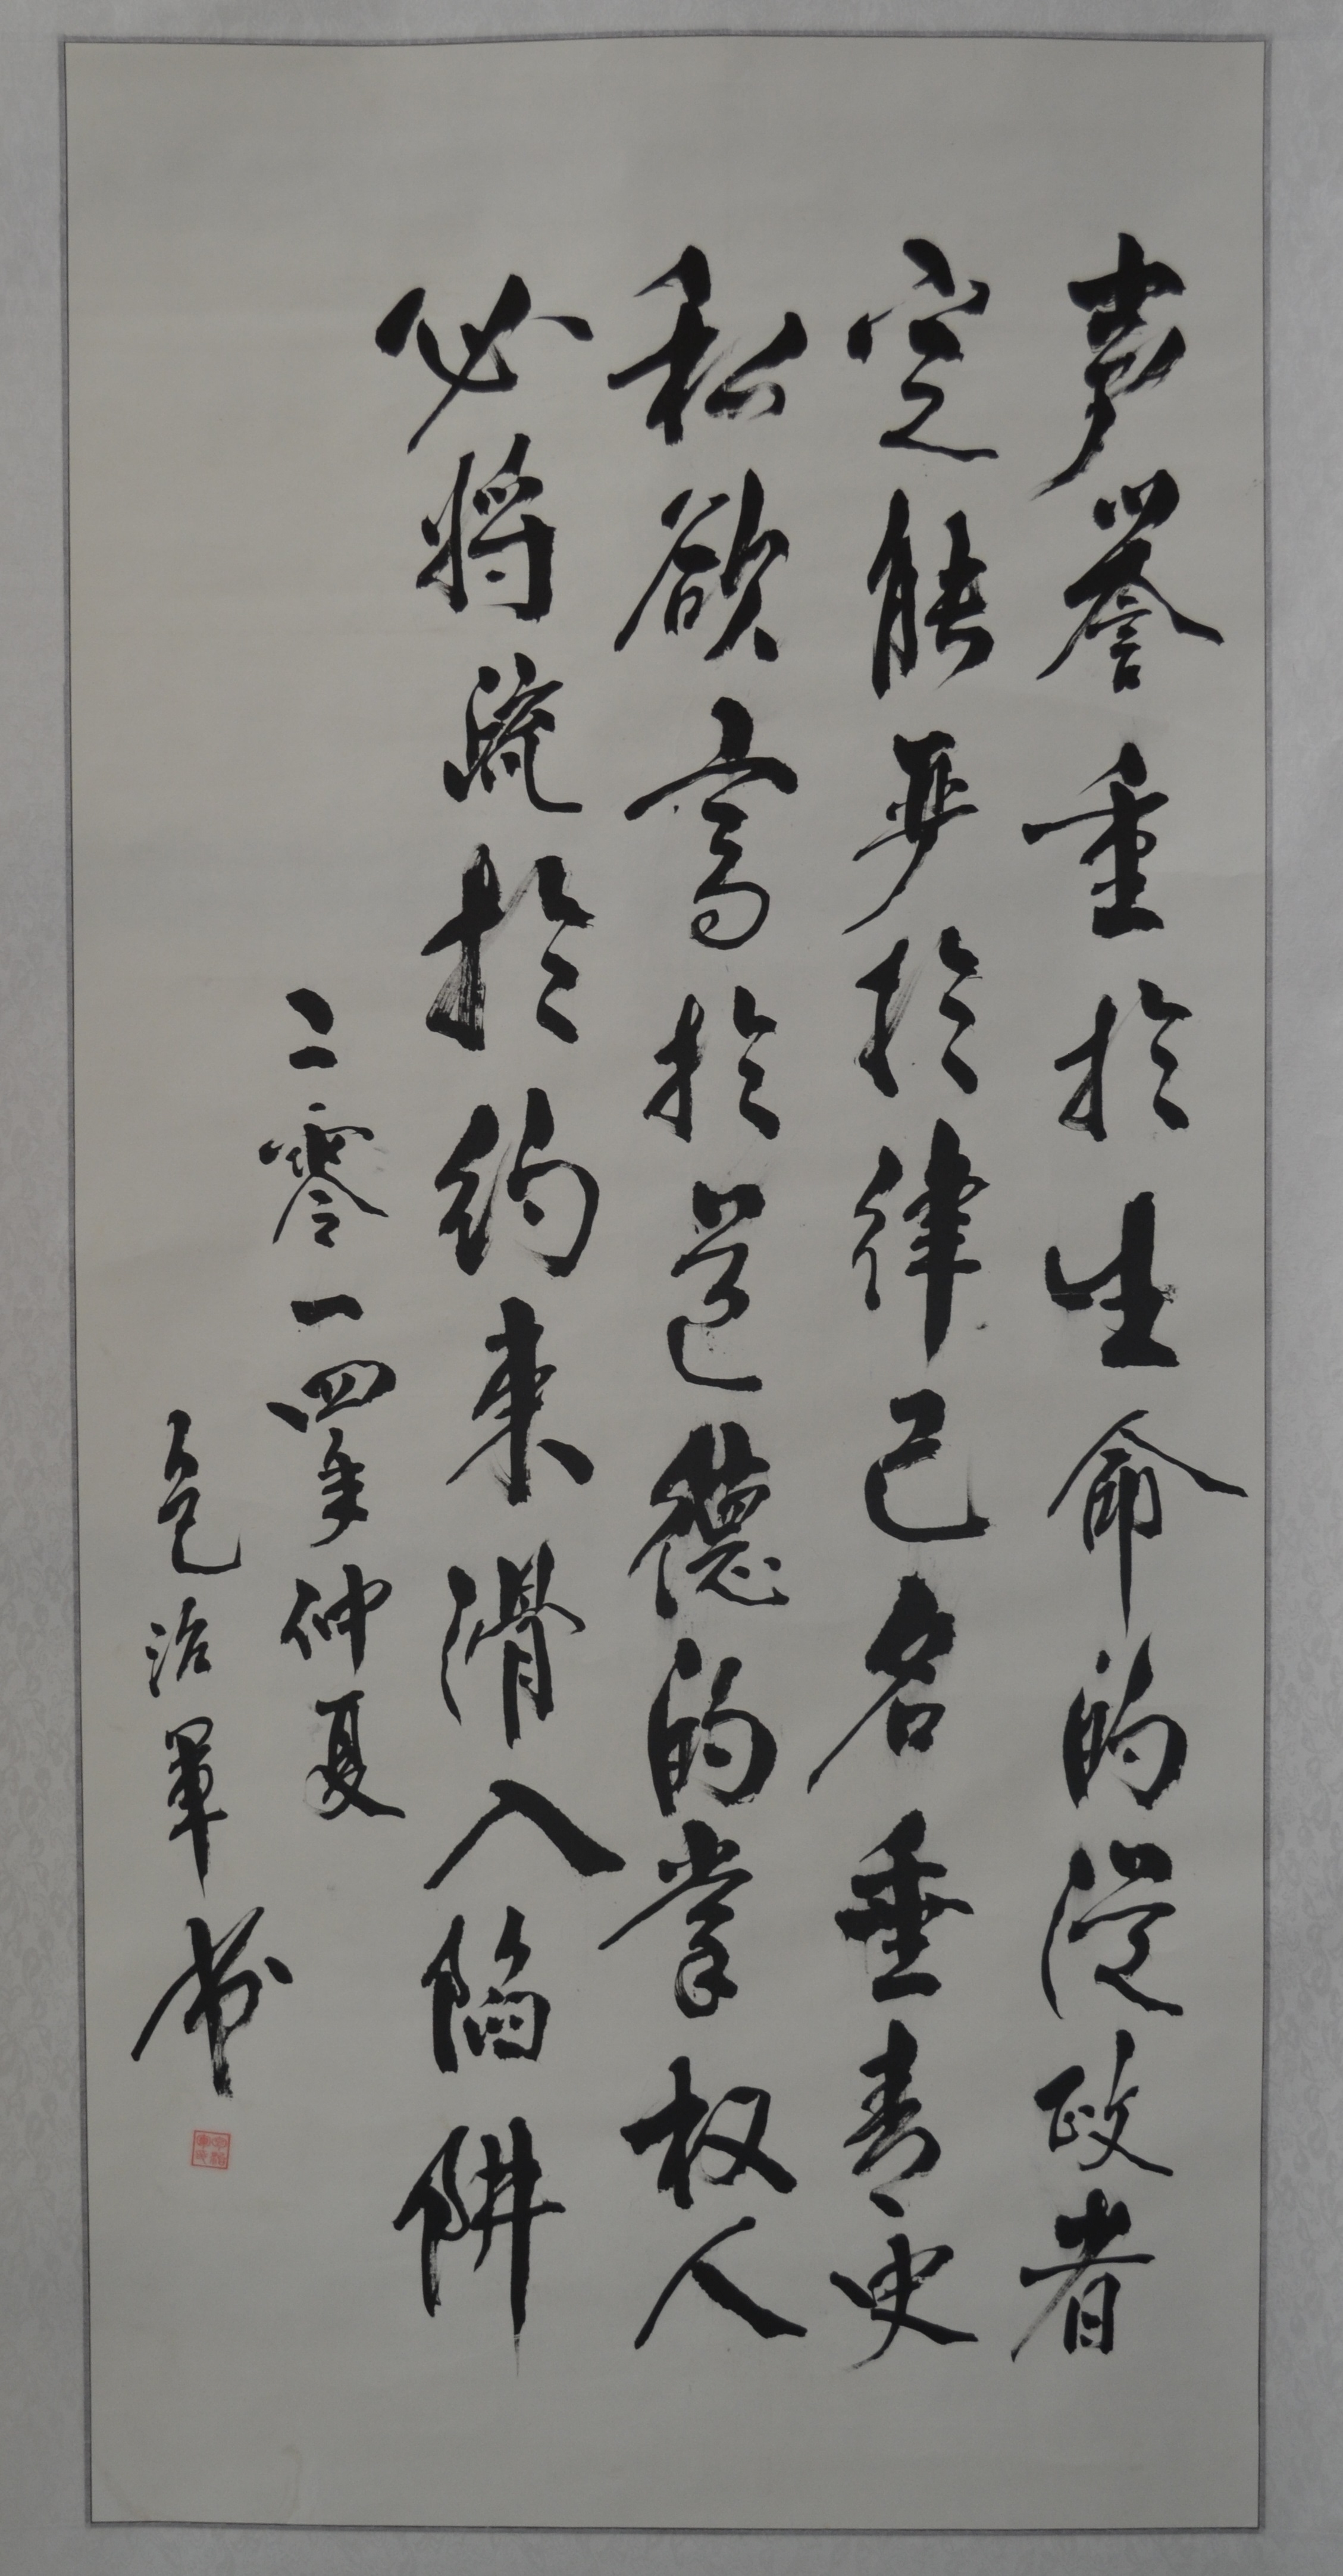 声誉重於生命的從政者
定能严於律己名垂青史
私欲高於道德的掌权人
必将疏於约束滑入陷阱
二零一四年仲夏
治軍书